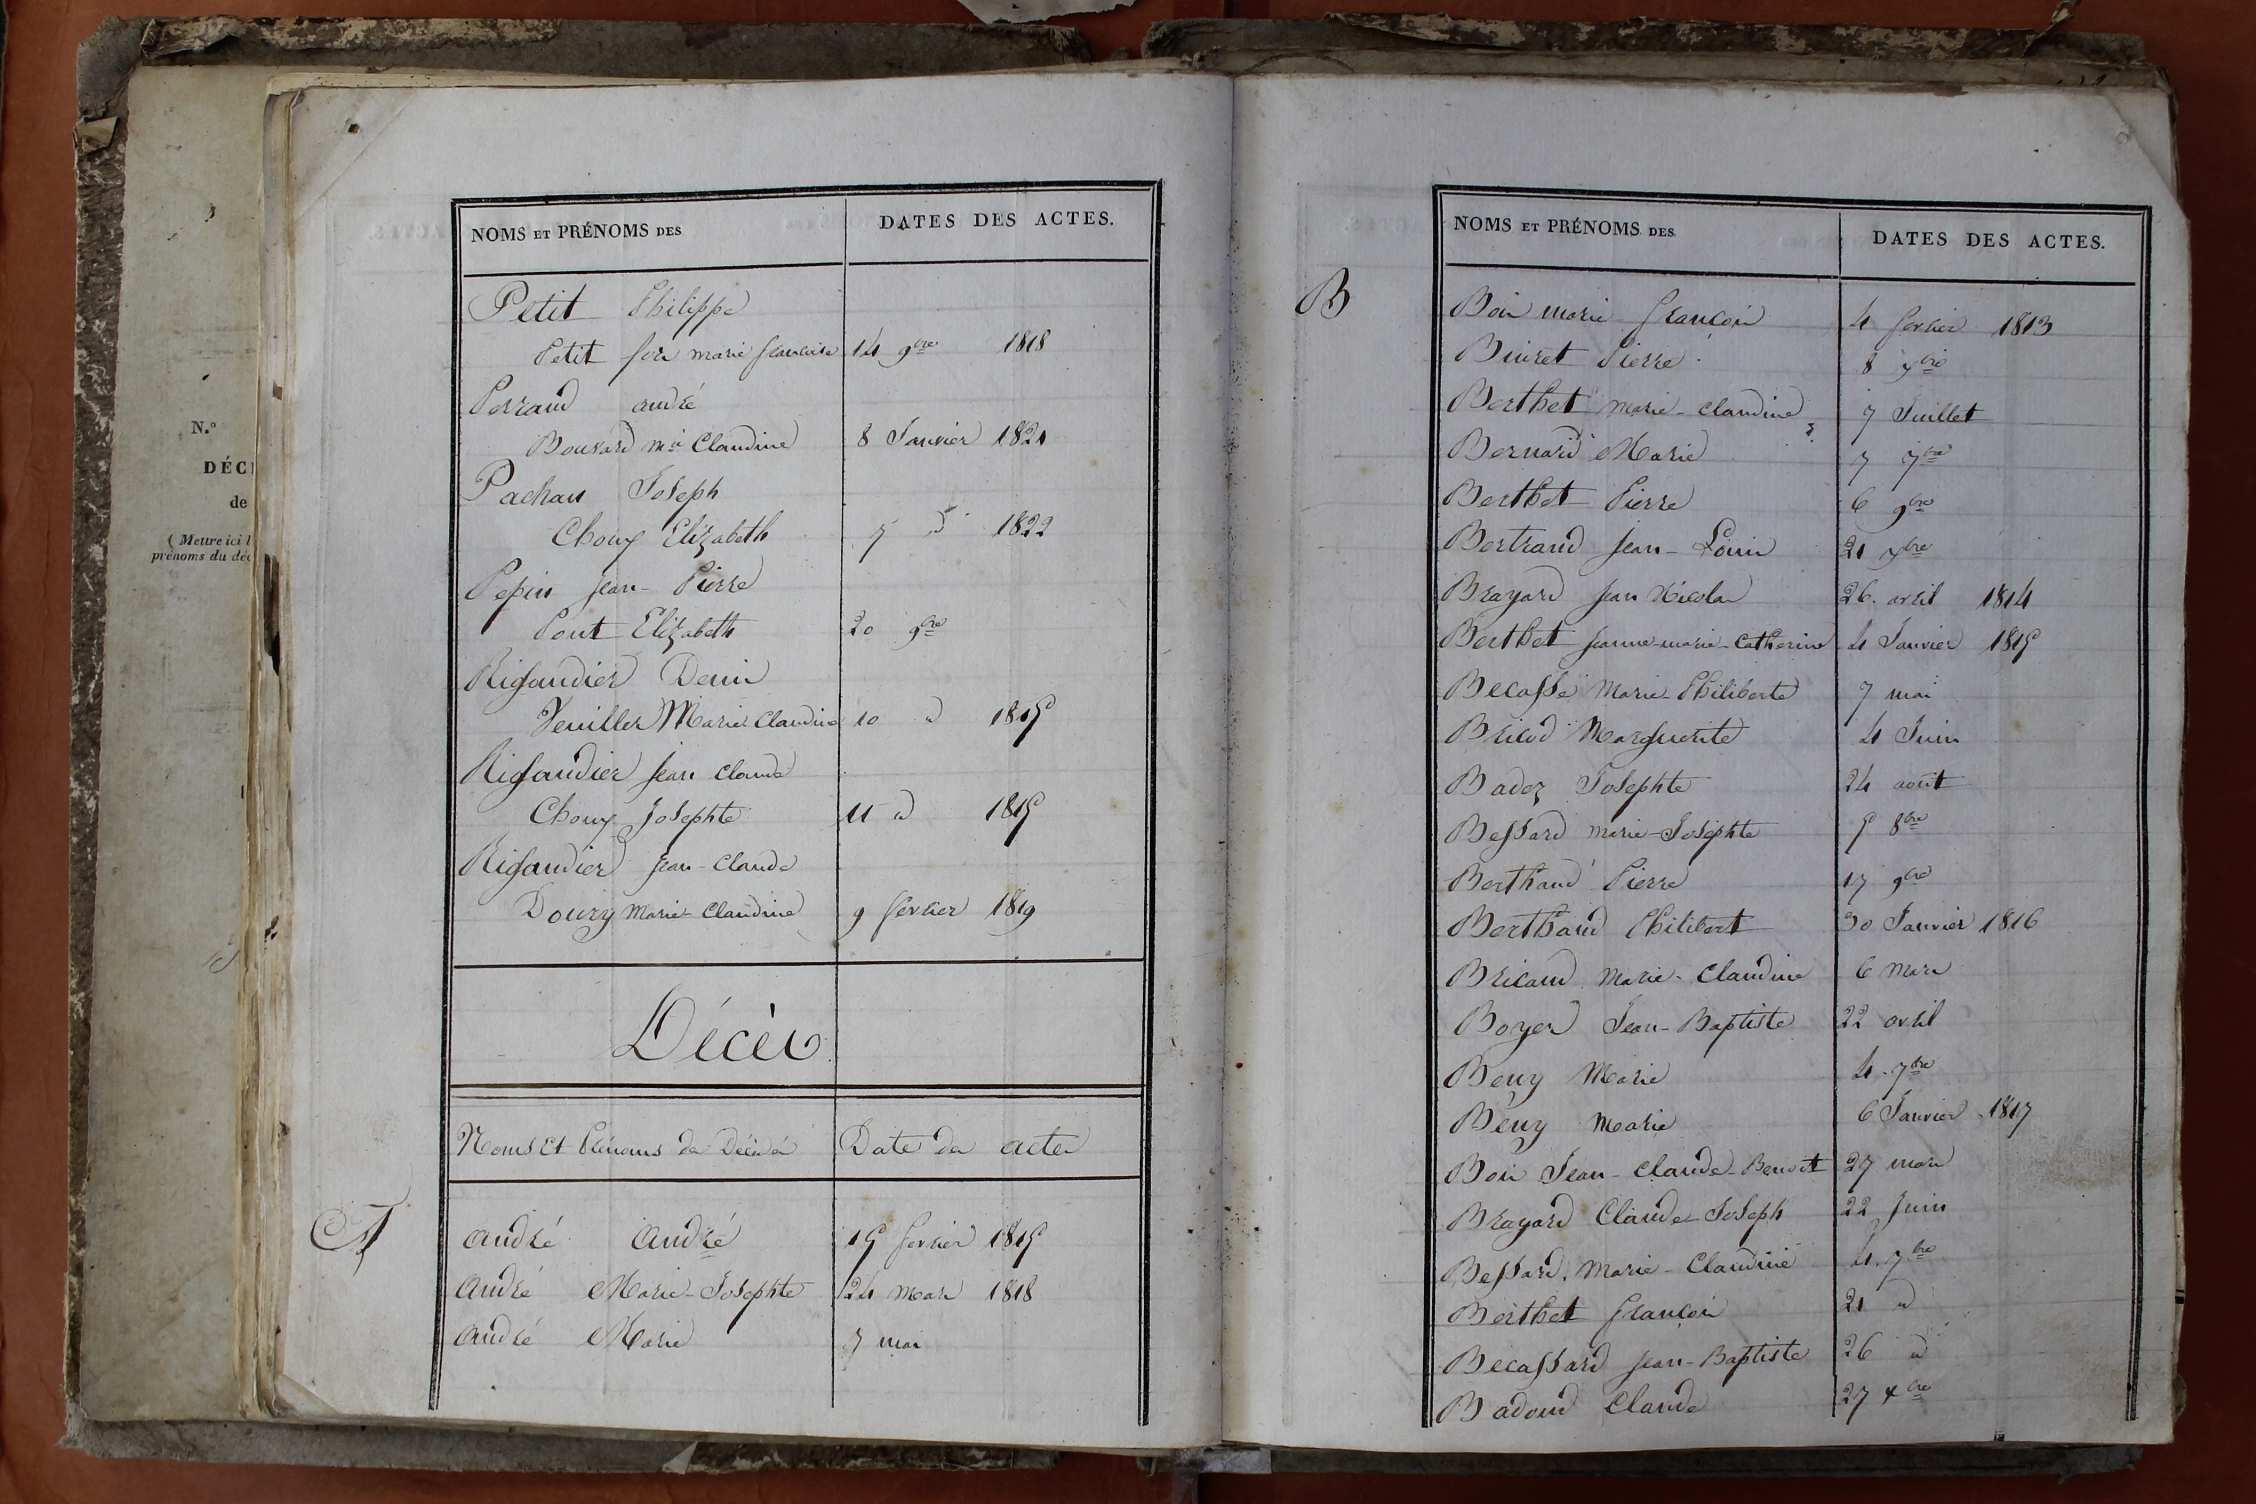 N.°
DÉC
de
( Mettre ici l
prénoms du déc
NOMS ET PRÉNOMS DES DATES DES ACTES.
Petit Philippe
Petit marie francoise 14 9bre 1818
Perraud andré
Bouvard Mie Claudine 8 Janvier 1821
Pachau Joseph
Choux Elizabeth 7 d 1822
Pepin Jean-Pierre
Pont Elizabeth 20 9bre
Rigaudier Denis
Veuillet Marie Claudine 10 d 1815
Rigaudier Jean Claude
Choux Josephte 11 d 1815
Rigaudier Jean-Claude
Doury Marie Claudine 9 fevrier 1819
Décès
Noms Et Prénoms des Décédés Date des actes
A
André André 15 fevrier 1815
André Marie-Josephte 24 Mars 1818
André Marie 7 mai
NOMS ET PRÉNOMS DES DATES DES ACTES.
B
Bois marie françois 4 fevrier 1813
Buiret Pierre 8 xbre
Berthet Marie-Claudine 7 Juillet
Bernard Marie 7 7bre
Berthet Pierre 6 9bre
Bertrand Jean-Louis 21 xbre
Brayard Jean Nicolas 26. avril 1814
Berthet Jeanne-marie-Catherine 4 Janvier 1815
Becasse Marie-Philiberte 7 mai
Bricod Marguerite 4 Juin
Badez Josephte 24 août
Bessard marie-Josephte 5 8bre
Berthaud Pierre 17 9bre
Berthaud Philibert 30 Janvier 1816
Bricaud Marie-Claudine 6 Mars
Boyer Jean-Baptiste 22 avril
Beny Marie 4. 7bre
Bény Marie 6 Janvier 1817
Bois Jean-Claude-Benoit 27 mars
Brayard Claude-Joseph 22 Juin
Bessard. Marie-Claudine 4. 7bre
Berthet françois 21 d
Becassard Jean-Baptiste 26 d
Badoud Claude 27 xbre